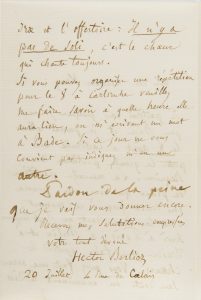 irae et l'offertoire: Il n'y a
pas de Soli, c'est le chœur
qui chante toujours.
Si vous pouvez organiser une répétition
pour le 8 à Carlsruhe veuillez
me faire savoir à quelle heure elle
aura lieu, en m'écrivant un mot
à Bade. Si ce jour ne vous
convient pas indiquez m'en un
autre.
Pardon de la peine
que je vais vous donner encore.
Recevez mes salutations empressées
votre tout dévoué
Hector Berlioz
20 Juillet 4 rue de Calais